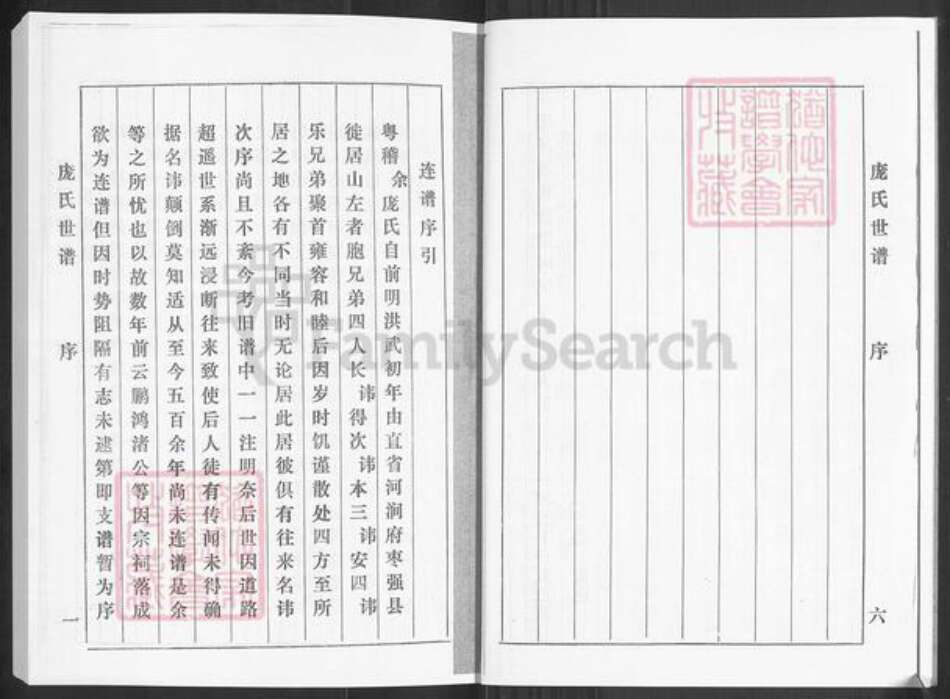 庞氏世谱 序 六
连谱序引
粤稽余庞氏自前明洪武初年由直省河涧府枣强县
徙居山左者胞兄弟四人长讳得次讳本三讳安四讳
乐兄弟聚首雍容和睦后因岁时饥谨散处四方至所
居之地各有不同当时无论居此居彼俱有往来名讳
次序尚且不紊今考旧谱中一一注明奈后世因道路
超遥世系渐远浸断往来致使后人徒有传闻未得确
据名讳颠倒莫知适从至今五百余年尚未连谱是余
等之所忧也以故数年前云鹏鸿渚公等因宗祠落成
欲为连谱但因时势阻隔有志未逮第即支谱暂为序
庞氏世谱 序 一
FamilySearch